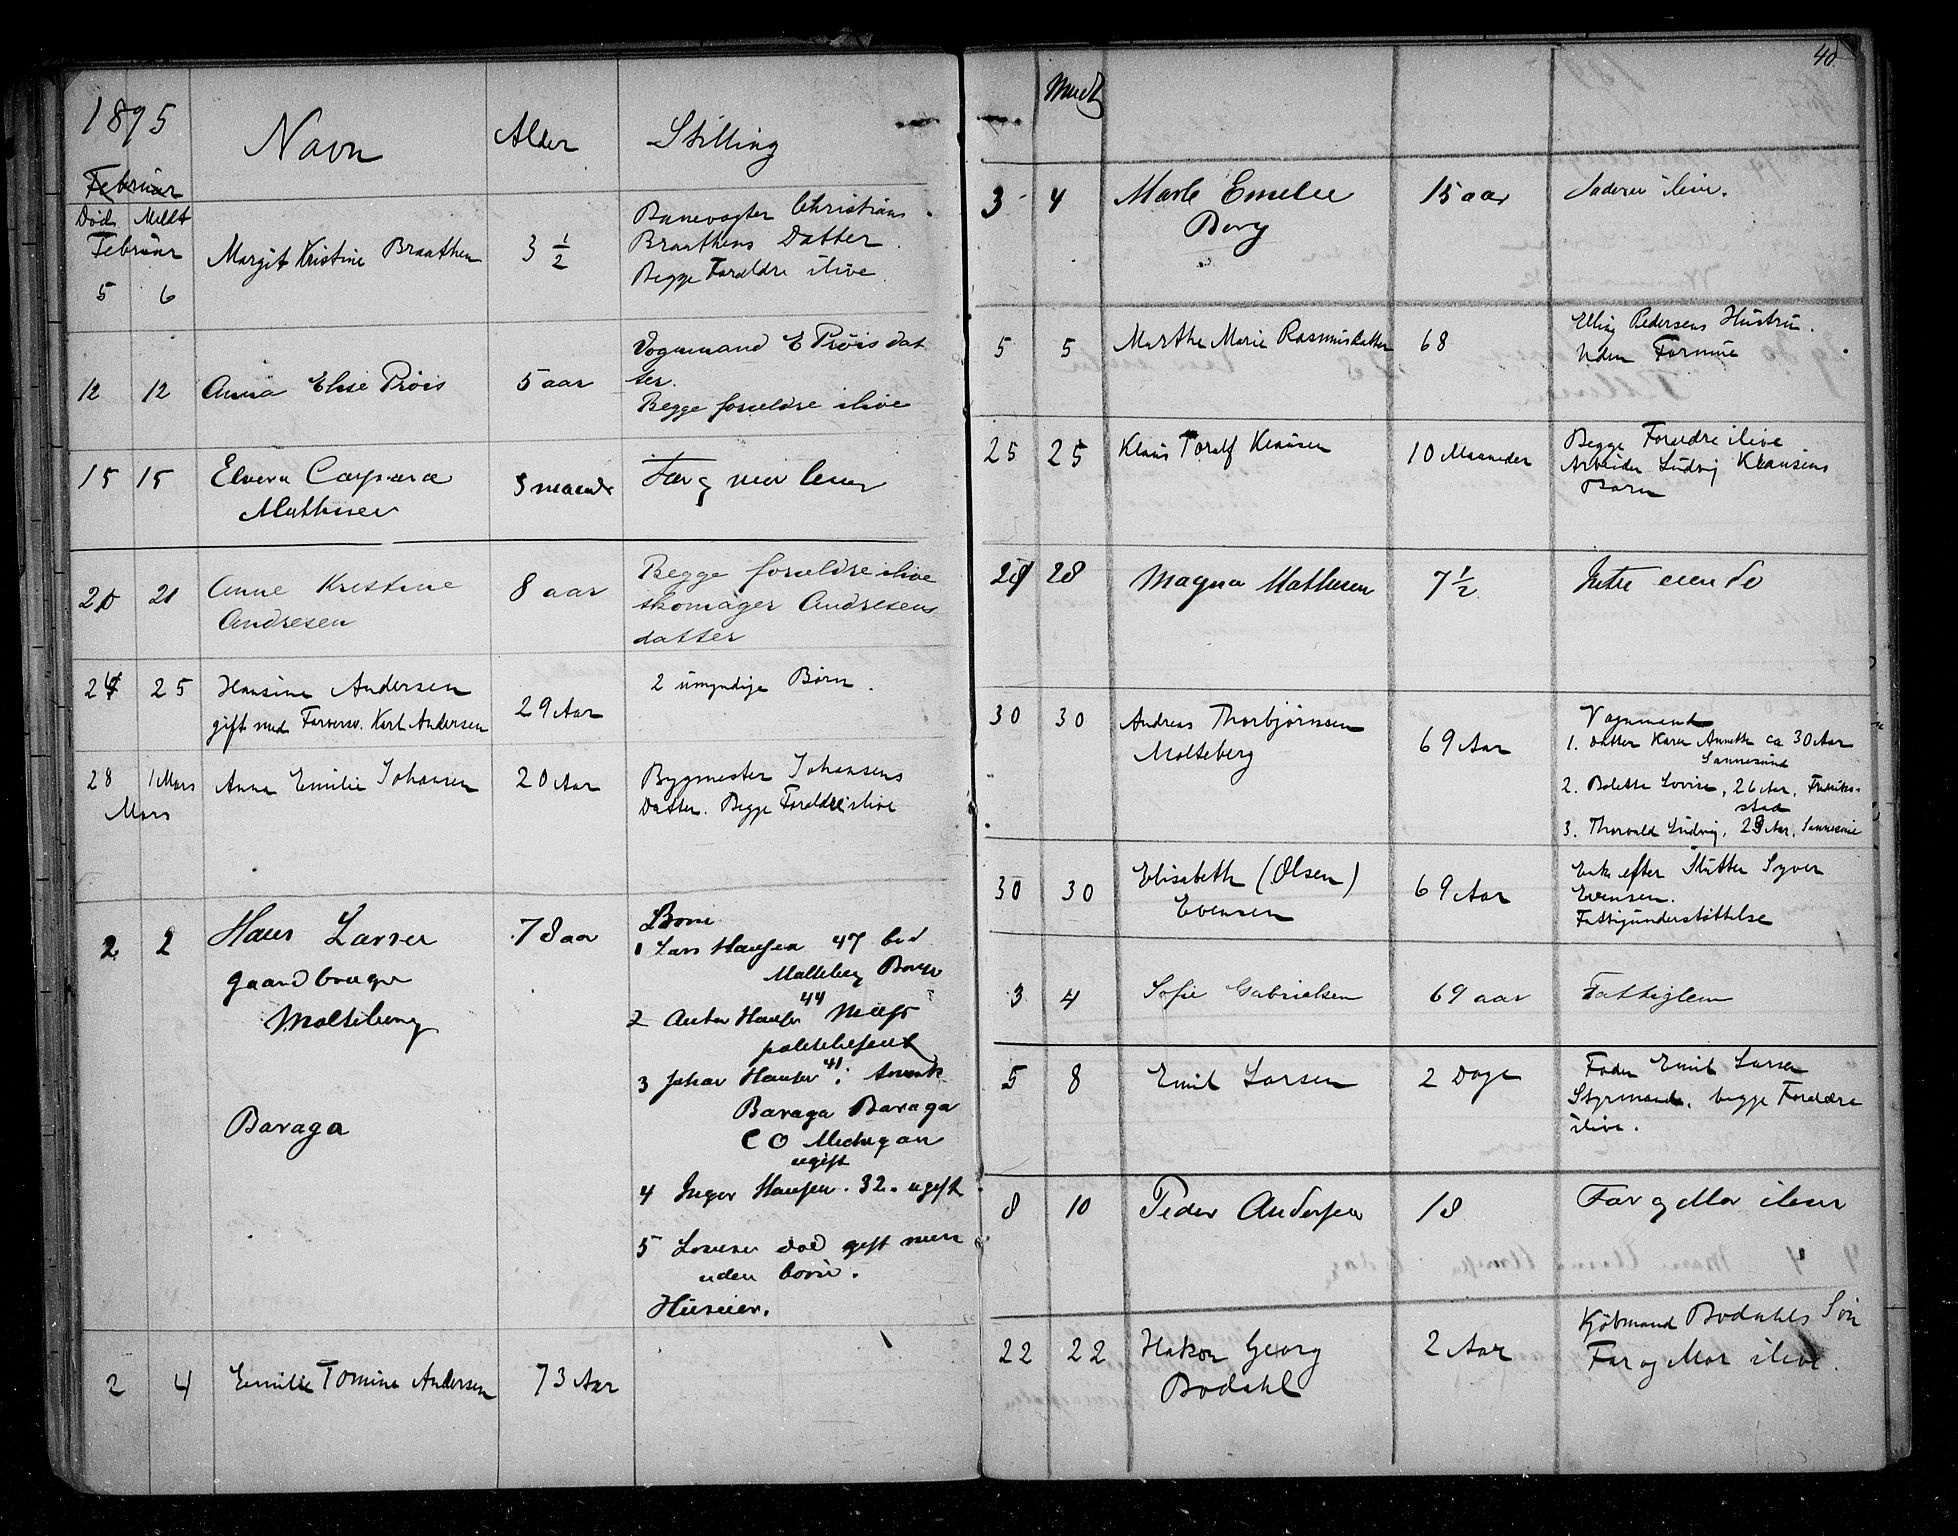 1895
Navn Alder Stilling
Februar
Død Meldt
Februar
5 6 Margit Kristine Braathen 3 1/2 Banevogter Christians
Braathens Datter
Begge Foreldre ilive
12 12 Anna Elise Prøis 5 aar Vognmand E Prøis dat
ter.
Begge forældre ilive
15 15 Elvera Caspara
Mathisen Far og mor lever
20 21 Anne Kristine
Andresen 8 aar Begge forældre ilive
skomager Andresens
datter
24 25 Hansine Andersen
gift med Farversv. Karl Andersen 29 Aar 2 umyndige Børn.
28 1 Mars Anna Emilie Johansen 20 Aar Bygmester Johansens
Datter. Begge Foraldre ilive
Mars
2 2 Hans Larsen
gaardbruger
Molteberg
Baraga
78 aar
Born
1 Lars Hansen 47
Molteberg Borge
2 Anton Hansen 44
politibetjent
3 Johan Hansen 41
Baraga Baraga
CO Michigan
ugift
4 Inger Hansen. 32. ugift
5 død gift men
uden born.
Huseier.
2 4 Emilie Tomine Andersen 73 Aar
40.
Meldt
3 4 Marle Emelie
Borg 15 aar Faderen ilive.
5 5 Marthe Marie Rasmusdatter 68 Elling Pedersens Hustru.
Uden Formue
25 25 Klaus Toralf Klausen 10 Maaneder Begge Forældre ilive
Arbeider Ludvig Klausens
Barn
28 28 Magna Mathisen 7 1/2 Intet eiende
30 30 Andreas Thorbjørnsen
Molteberg 69 Aar Vognmand
1. Datter Karen Annette ca 30 Aar
Sannesund
2. Bolette Lovise, 26 Aar, Fredriks-
stad
3. Thorvald Ludvig, 23 Aar, Sannesund
30 30 Elisabeth (Olsen)
Evensen 69 Aar Enke efter Syver
Evensen.
Fattigunderstøttelse
3 4 Sofie Gabrielsen 69 aar Fattiglem
5 8 Emil Larsen 2 Dage Fader Emil Larsen
Styrmand, begge Foraldre
ilive.
8 10 Peder Andersen 18 Far og Mor ilive
22 22 Hakon Georg
Bodahl 2 Aar Kjøbmand Bodahls Søn
Far og Mor ilive.